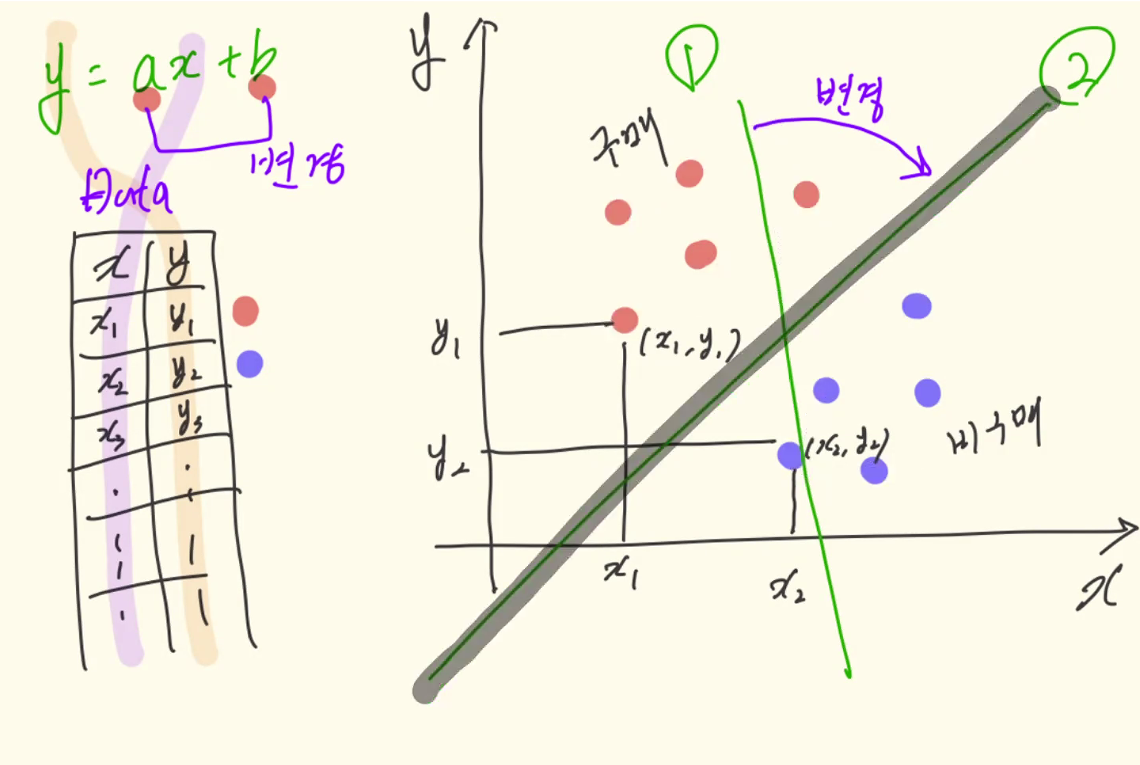 y = ax + b
변경
Data
x y
x₁ y₁
x₂ y₂
x₃ y₃
y
①
②
변경
구매
y₁
(x₁, y₁)
y₂
(x₂, y₂)
비구매
x₁
x₂
x